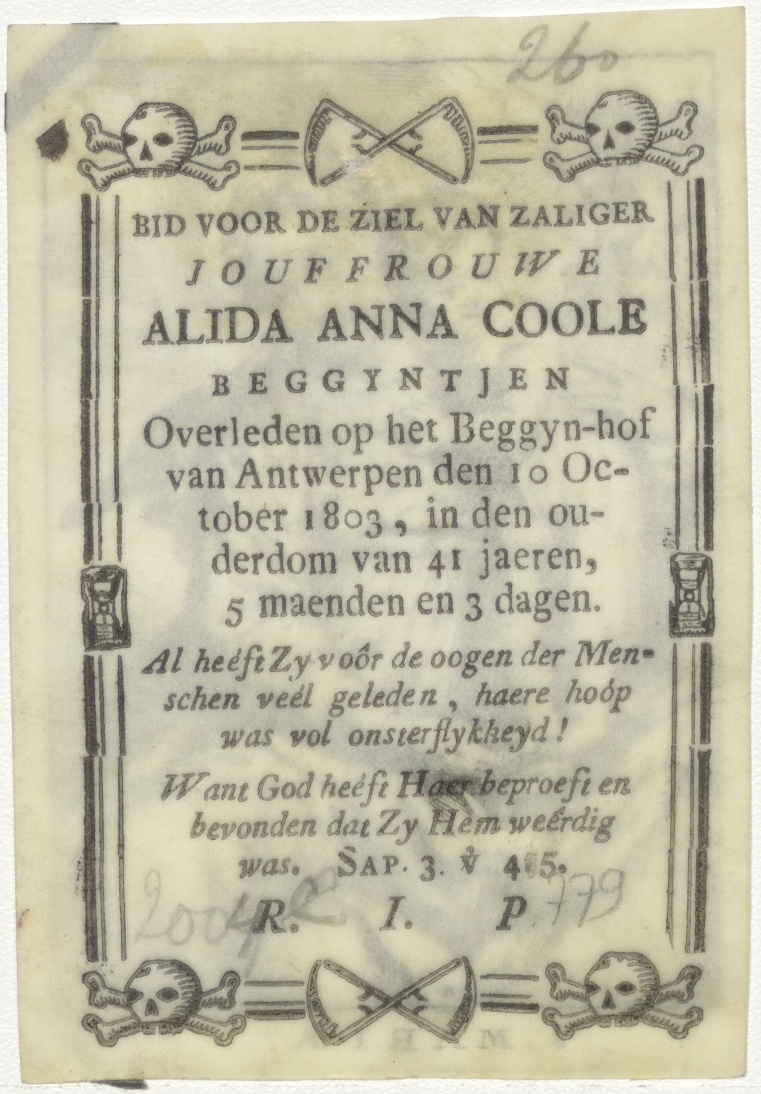 260
BID VOOR DE ZIEL VAN ZALIGER
JOUFFROUWE
ALIDA ANNA COOLE
BEGGYNTJEN
Overleden op het Beggyn-hof
van Antwerpen den 10 Oc-
tober 1803, in den ou-
derdom van 41 jaeren,
5 maenden en 3 dagen.
Al heéft Zy voôr de oogen der Men-
schen veél geleden, haere hoóp
was vol onsterflykheyd!
Want God heéft Haer beproeft en
bevonden dat Zy Hem weérdig
was. SAP. 3. ℣ 4 5.
R. I. P
779
MARIA